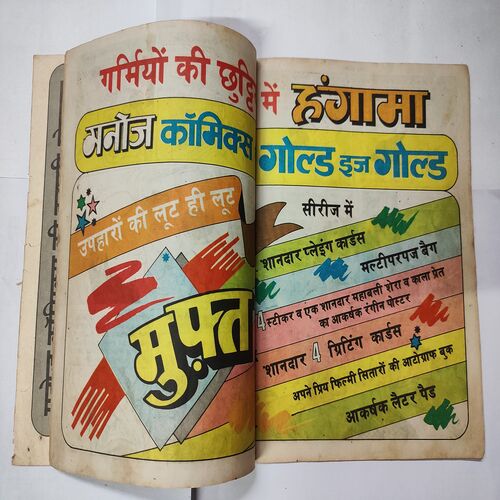 गर्मियों की छुट्टि में हंगामा
मनोज कॉमिक्स गोल्ड इज गोल्ड
उपहारों की लूट ही लूट
मुफ़्त
सीरीज में
शानदार प्लेइंग कार्डस
मल्टीपरपज बैग
4 स्टीकर व एक शानदार महाबली शेरा व काला प्रेत
का आकर्षक रंगीन पोस्टर
शानदार 4 ग्रिटिंग कार्डस
अपने प्रिय फिल्मी सितारों की आटोग्राफ बुक
आकर्षक लैटर पैड